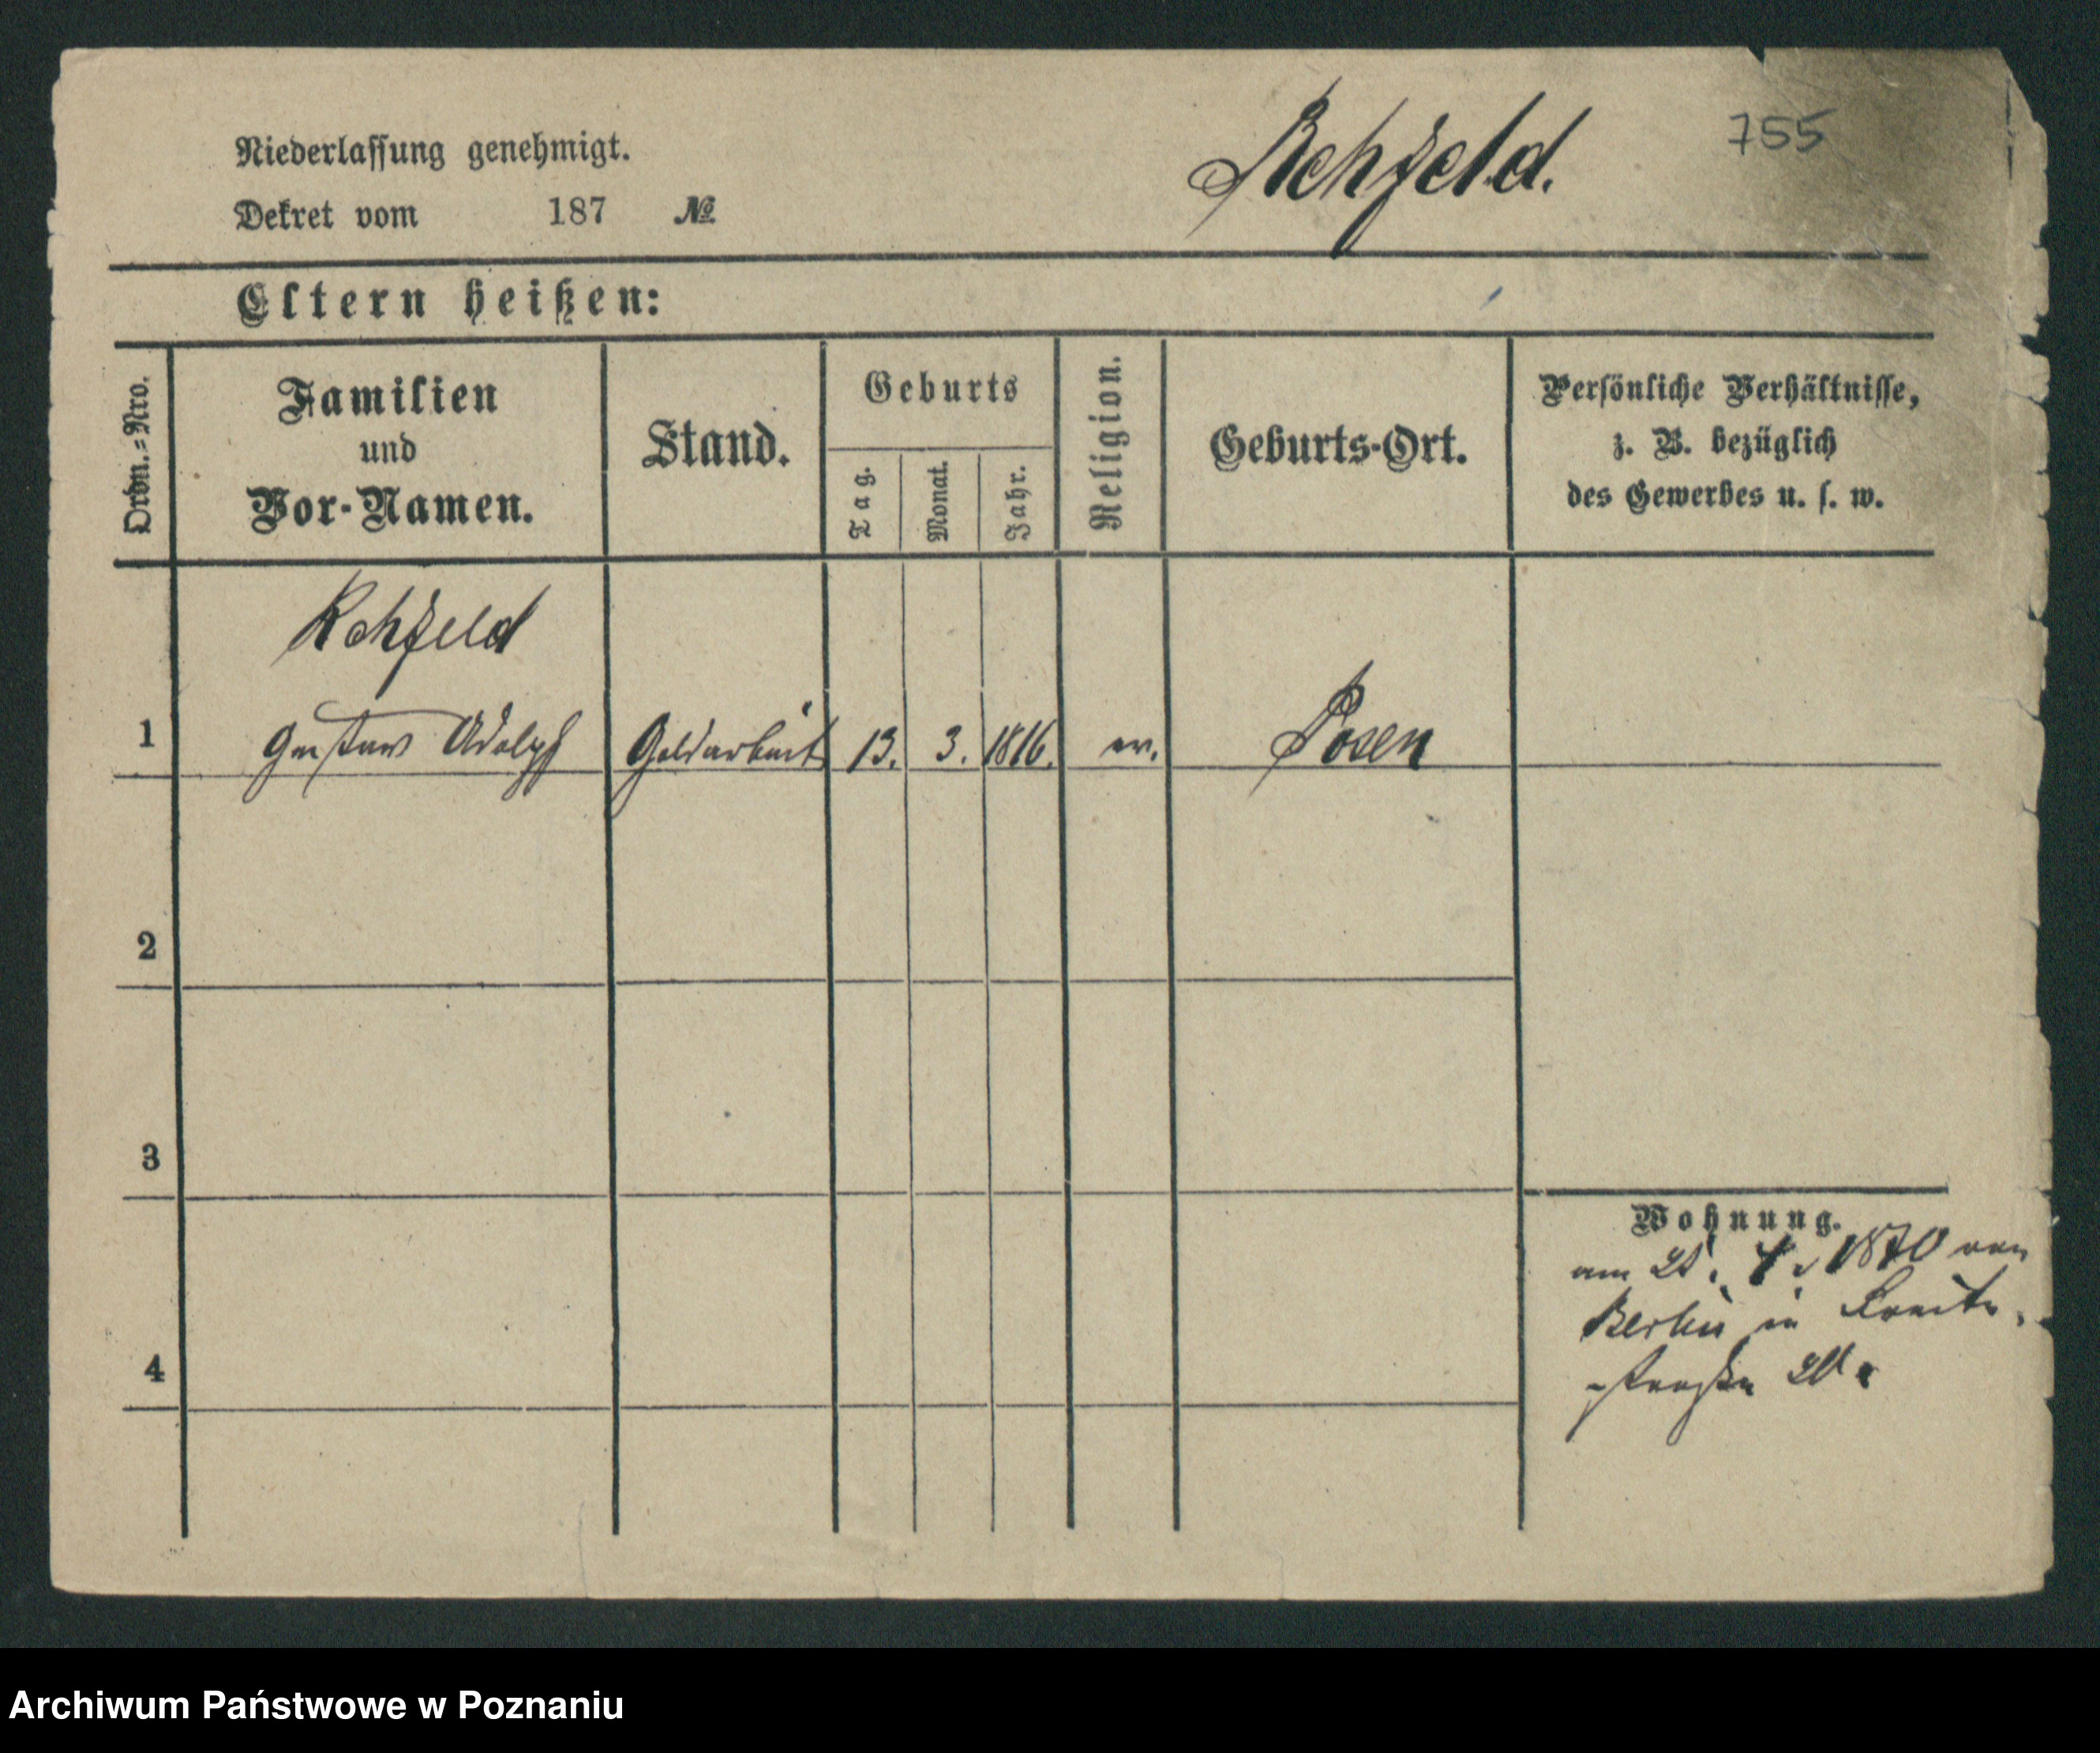 Niederlassung genehmigt.
Dekret vom 187 №
Rehfeld.
755
Eltern heißen:
Ordn.=Nro.
Familien
und
Vor-Namen.
Stand.
Geburts
Tag.
Monat.
Jahr.
Religion.
Geburts-Ort.
Persönliche Verhältnisse,
z. B. bezüglich
des Gewerbes u. s. w.
Rehfeld
1 Gustav Adolph Goldarbeit 13. 3. 1816. ev. Posen
2
3
4
Wohnung.
am 1870 von
Berlin in Breite-
straße
Archiwum Państwowe w Poznaniu